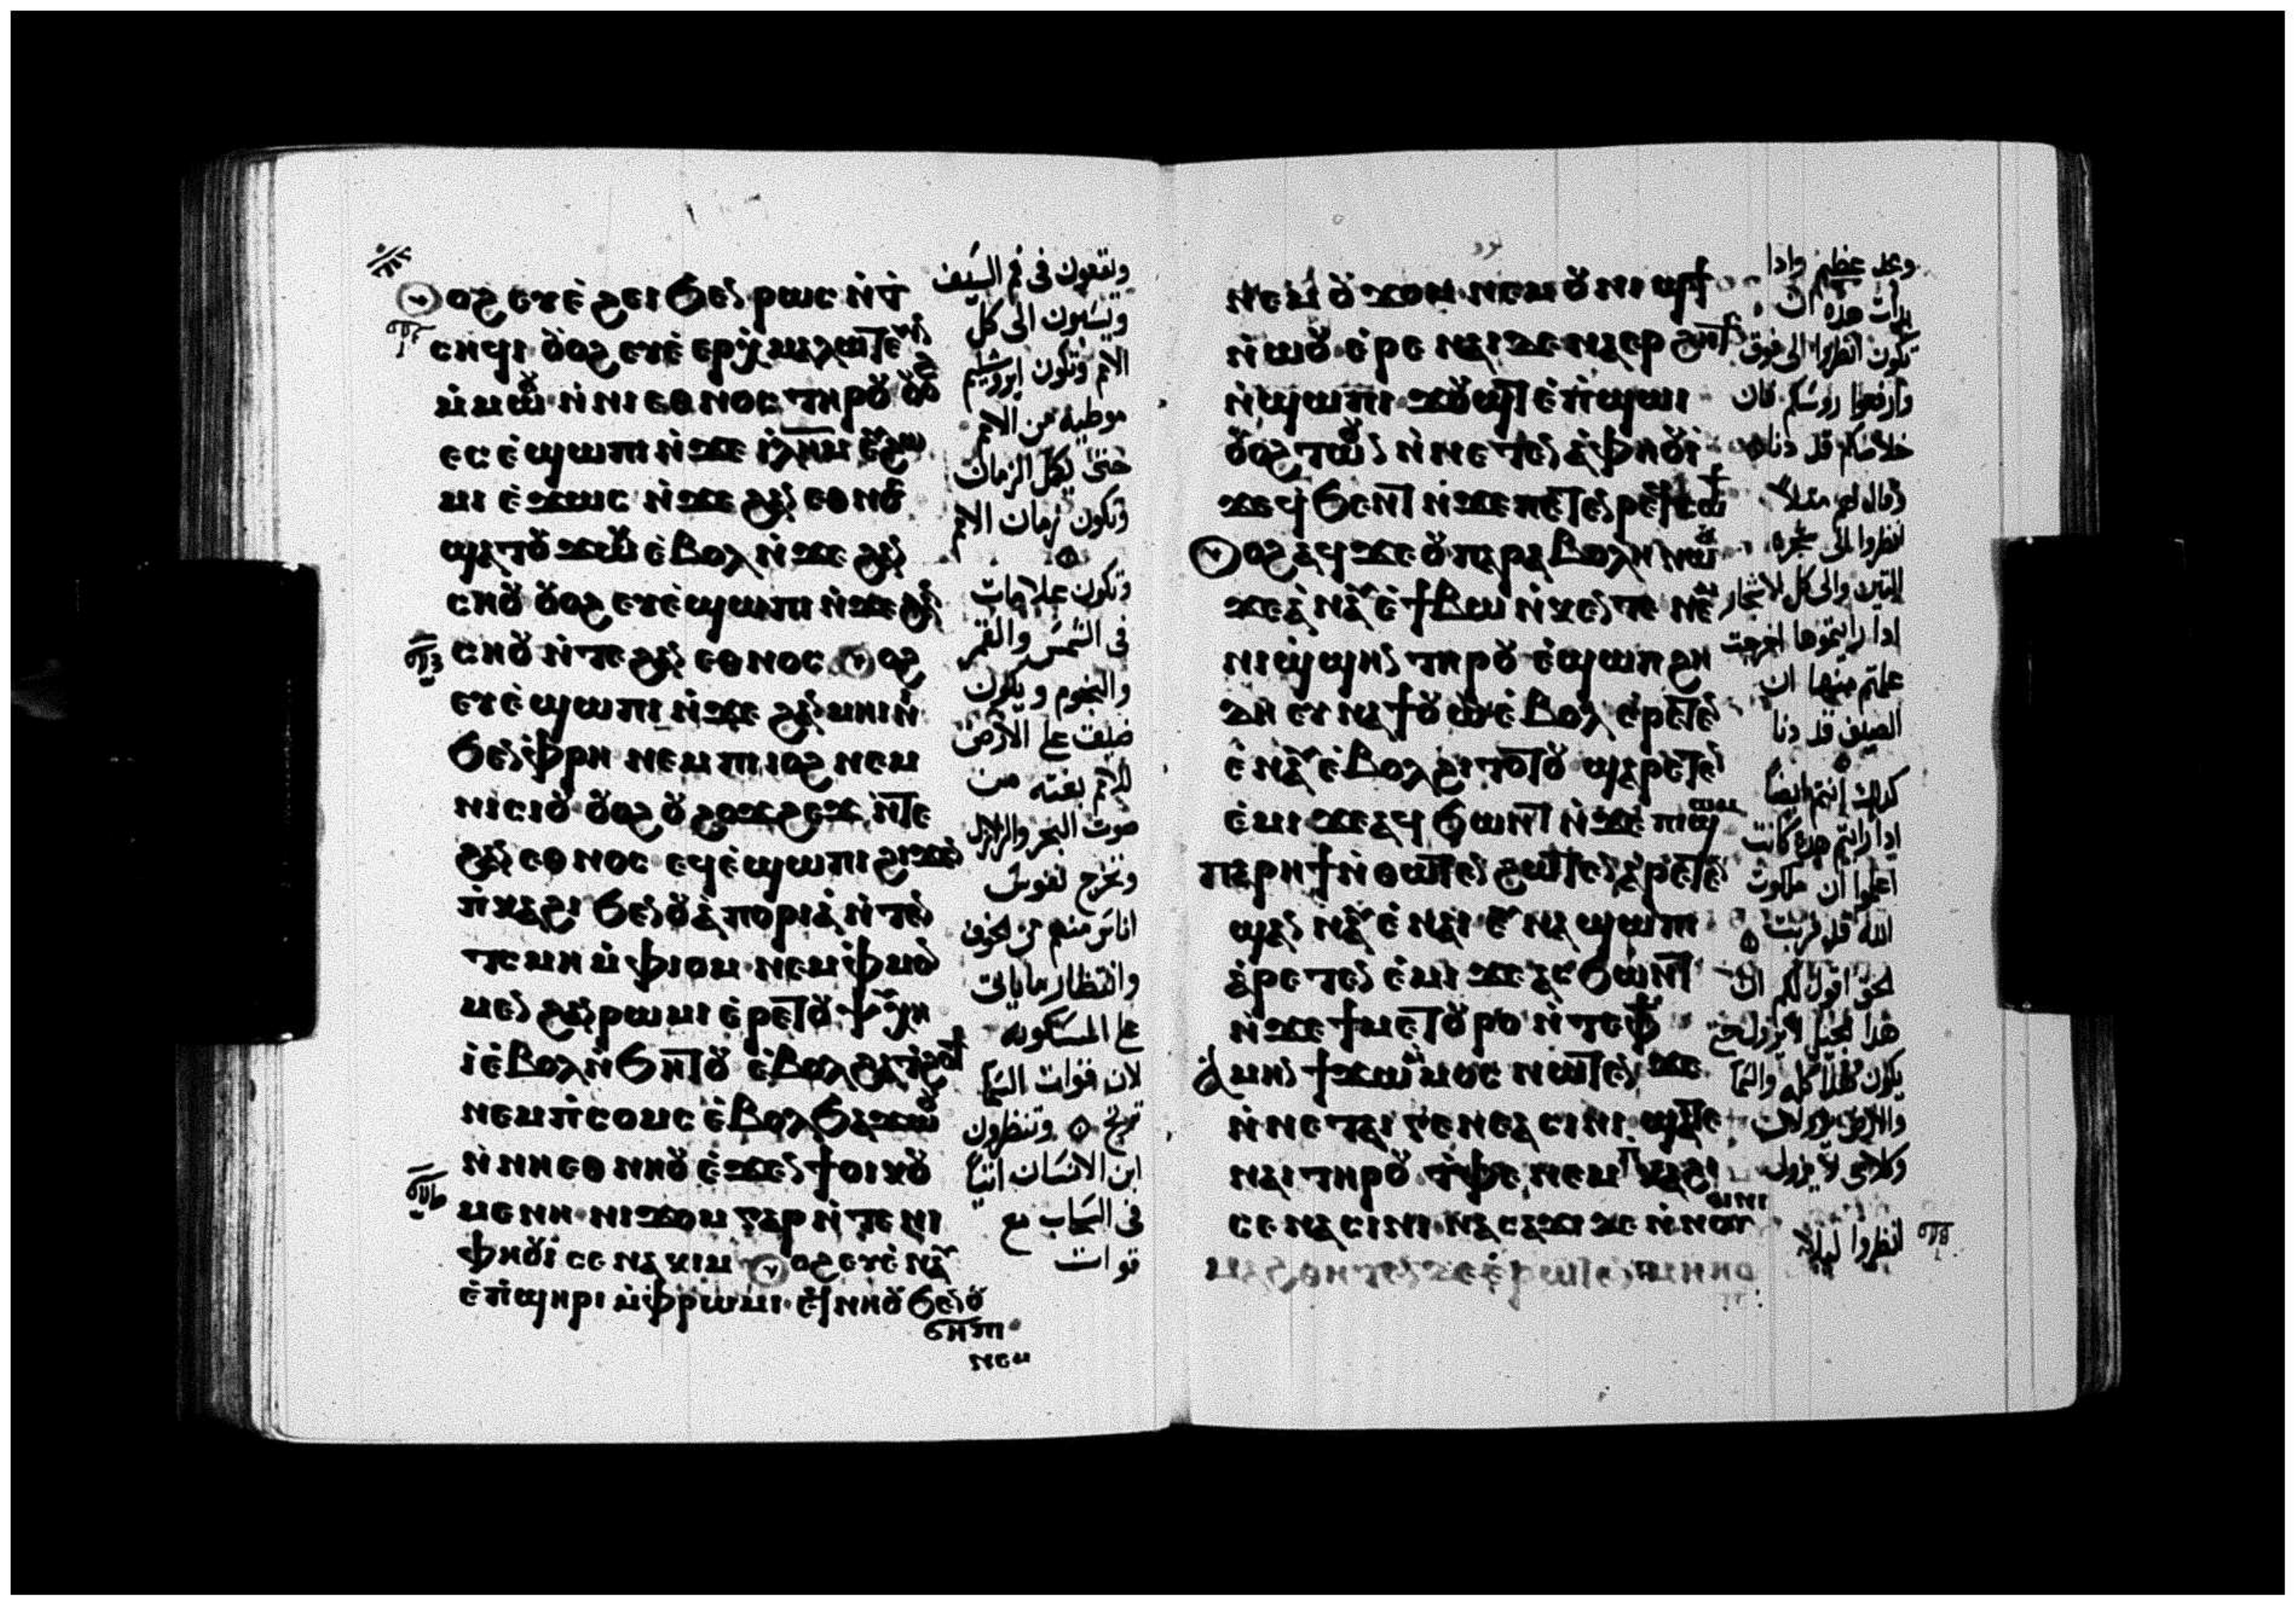 ⲟϩ ⲉⲩⲉ̀ϩⲉⲓ ϧⲉⲛ ⲣⲱⲥ ⲛ̀ⲧ
ⲥⲏϥⲓ ⲟⲩⲟϩ ⲉⲩⲉ̀ⲉⲣⲉⲭⲙⲁⲗⲱⲧⲉⲩⲓⲛ
ⲙ̀ⲙⲱⲟⲩ ⲛ̀ⲛⲓⲉⲑⲛⲟⲥ ⲧⲏⲣⲟⲩ ⲟⲩⲟϩ
ⲉⲥⲉ̀ϣⲱⲡⲓ ⲛ̀ϫⲉ ⲓ̀ⲗⲏⲙ ⲉⲩϩⲱ
ⲙⲓ ⲉ̀ϫⲱⲥ ⲛ̀ϫⲉ ϩⲁⲛ ⲉⲑⲛⲟⲥ
ϣⲁⲧⲟⲩϫⲱⲕ ⲉ̀ⲃⲟⲗ ⲛ̀ϫⲉ ϩⲁⲛ
ⲥⲏⲟⲩ ⲟⲩⲟϩ ⲉⲩⲉ̀ϣⲱⲡⲓ ⲛ̀ϫⲉ ϩⲁⲛ
ⲥⲏⲟⲩ ⲛ̀ⲧⲉ ϩⲁⲛ ⲉⲑⲛⲟⲥ ⲟϩ
ⲉⲩⲉ̀ϣⲱⲡⲓ ⲛ̀ϫⲉ ϩⲁⲛⲙⲏⲓⲛⲓ
ϧⲉⲛ ⲫⲣⲏ ⲛⲉⲙ ⲡⲓⲓⲟϩ ⲛⲉⲙ
ⲛⲓⲥⲓⲟⲩ ⲟⲩⲟϩ ⲟⲩϩⲟϫϩⲉϫ ⲛ̀ⲧⲉ
ϩⲁⲛ ⲉⲑⲛⲟⲥ ⲉϥⲉ̀ϣⲱⲡⲓ ϩⲓϫⲉⲛ
ⲡ̀ⲕⲁϩⲓ ϧⲉⲛ ⲟⲩⲁ̀ⲡⲟⲣⲓⲁ̀ ⲛ̀ⲧⲉⲛ
ⲧⲥⲙⲏ ⲙ̀ⲫⲓⲟⲙ ⲛⲉⲙ ⲫⲙⲟⲛ
ⲙⲉⲛ ϩⲁⲛⲣⲱⲙⲓ ⲉ̀ⲣⲉⲧⲟⲩⲯⲩⲭⲏ
ⲓ̀ ⲉ̀ⲃⲟⲗ ⲛ̀ϧⲏⲧⲟⲩ ⲉ̀ⲃⲟⲗϩⲁⲧ̀ϩⲟϯ
ⲛⲉⲙ ⲡ̀ⲥⲟⲙⲥ ⲉ̀ⲃⲟⲗϧⲁϫⲱⲟⲩ
ⲛ̀ⲛⲏⲉⲑⲛⲏⲟⲩ ⲉ̀ϫⲉⲛ ϯⲟⲓⲕⲟⲩ
ⲙⲉⲛⲏ ⲛⲓϫⲟⲙ ⲅⲁⲣ ⲛ̀ⲧⲉ ⲛⲓ
ⲫⲏⲟⲩⲓ̀ ⲥⲉⲛⲁⲕⲓⲙ ⲟϩ ⲉⲩⲉ̀ⲛⲁⲩ
ⲉ̀ⲡ̀ϣⲏⲣⲓ ⲙ̀ⲫⲣⲱⲙⲓ ⲉϥⲛⲏⲟⲩ ϧⲉⲛ ⲟⲩ
ϭⲏⲡⲓ
ⲛⲉⲙ
وتقعون في فم السيف
ويسبون الى كل
الامم وتكون ايروشليم
موطيه من الامم
حتى يكمل الزمان
وتكون زمان الامم
وتكون علامات
في الشمس والقمر
والنجوم ويكون
ضيق على الارض
للامم بغته من
صوت البحر والزلازل
وتخرج نفوس
اناس منهم من الخوف
وانتظار ما ياتى
على المسكونه
لان قوات السما
ترتج وتنظرون
ابن الانسان اتيا
في السحاب مع
قوات
ⲛⲉⲙ ⲟⲩϫⲟⲙ ⲛⲉⲙ ⲟⲩⲛⲓϣϯ
ⲛ̀ⲱⲟⲩ ⲉ̀ⲣⲉ ⲛⲁⲓ ϫⲉ ⲛⲁⲉⲣϩⲏⲧⲥ
ⲛ̀ϣⲱⲡⲓ ϫⲟⲩϣⲧ ⲉ̀ⲡ̀ϣⲱⲓ
ⲟⲩⲟϩ ⲧⲱⲟⲩⲛ ⲛ̀ⲛⲉⲧⲉⲛⲁ̀ⲫⲏⲟⲩⲓ̀
ϫⲉ ϥϧⲉⲛⲧ ⲛ̀ϫⲉ ⲡⲉⲧⲉⲛⲣⲉϥⲥⲱϯ
ⲟϩ ⲁϥϫⲉ ⲟⲩⲡⲁⲣⲁⲃⲟⲗⲏ ⲛⲱⲟⲩ
ϫⲉ ⲁ̀ⲛⲁⲩ ⲉ̀ϯⲃⲱ ⲛ̀ⲕⲉⲛⲧⲉ ⲛⲉⲙ
ⲛⲓϣϣⲏⲛ ⲧⲏⲣⲟⲩ ⲉ̀ϣⲱⲡ ϩⲏ
ⲇⲏ ⲉⲩⲛⲁϯⲟⲩⲱ ⲉ̀ⲃⲟⲗ ⲉ̀ⲣⲉⲧⲉⲛ
ⲉ̀ⲛⲁⲩ ⲉ̀ⲃⲟⲗϩⲓⲧⲟⲧⲟⲩ ϣⲁⲣⲉⲧⲉⲛ
ⲉ̀ⲙⲓ ϫⲉ ⲁϥϧⲱⲛⲧ ⲛ̀ϫⲉ ⲡⲓϣⲱⲙ
ⲡⲁⲣⲏϯ ⲛ̀ⲑⲱⲧⲉⲛ ϩⲱⲧⲉⲛ ⲁ̀ⲣⲉⲧⲉⲛ
ϣⲁⲛ ⲛⲁⲩ ⲉ̀ⲛⲁⲓ ⲉⲩⲛⲁϣⲱⲡⲓ
ⲁ̀ⲣⲉⲧⲉⲛ ⲉ̀ⲙⲓ ϫⲉ ⲁⲥϧⲱⲛⲧ
ⲛ̀ϫⲉ ϯⲙⲉⲧⲟⲩⲣⲟ ⲛ̀ⲧⲉ ⲫϯ
ⲁ̀ⲙⲏⲛ ϯϫⲱ ⲙⲙⲟⲥ ⲛⲱⲧⲉⲛ ϫⲉ
ⲛ̀ⲛⲉ ⲧⲁⲓ ⲅⲉⲛⲉⲁ ⲥⲓⲛⲓ ϣⲁⲧⲉ
ⲛⲁⲓ ⲧⲏⲣⲟⲩ ⲧ̀ⲫⲉ ⲛⲉⲙ ⲡⲕⲁϩⲓ
ⲥⲉⲛⲁⲥⲓⲛⲓ ⲛⲁⲥⲁϫⲓ ⲇⲉ ⲛ̀ⲛⲟⲩⲥⲓⲛⲓ
ⲙⲁϩⲑⲏⲧⲉⲛ ϫⲉ ⲉ̀ⲣⲱⲧⲉⲛ ⲙⲏⲡⲟ
ومجد عظيم واذا
بدات هذه ان
تكون انظروا الى فوق
وارفعوا روسكم فان
خلاصكم قد دنا
وقال لهم مثلا
انظروا الى شجره
التين والى كل الاشجار
اذا رايتموها اخرجت
علمتم منها ان
الصيف قد دنا
كذلك انتم ايضا
اذا رايتم هذه كانت
اعلموا ان ملكوت
الله قد قربت
الحق اقول لكم ان
هذا الجيل لا يزول حتى
يكون هذا كله والسما
والارض يزولان
وكلامى لا يزول
انظروا ليلا